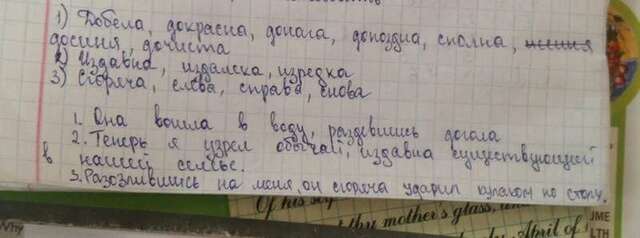 1) Добела, докрасна, донага, допоздна, сполна,
досиня, дочиста
2) Издавна, издалека, изредка
3) Сгоряча, слева, справа, снова
1. Она вошла в воду, раздевшись догола
2. Теперь я узрел обычай, издавна существующий
в нашей семье.
3. Разозлившись на меня, он сгоряча ударил кулаком по столу.
Of his
thy mother's glass,
April of
UME
LTH
Why